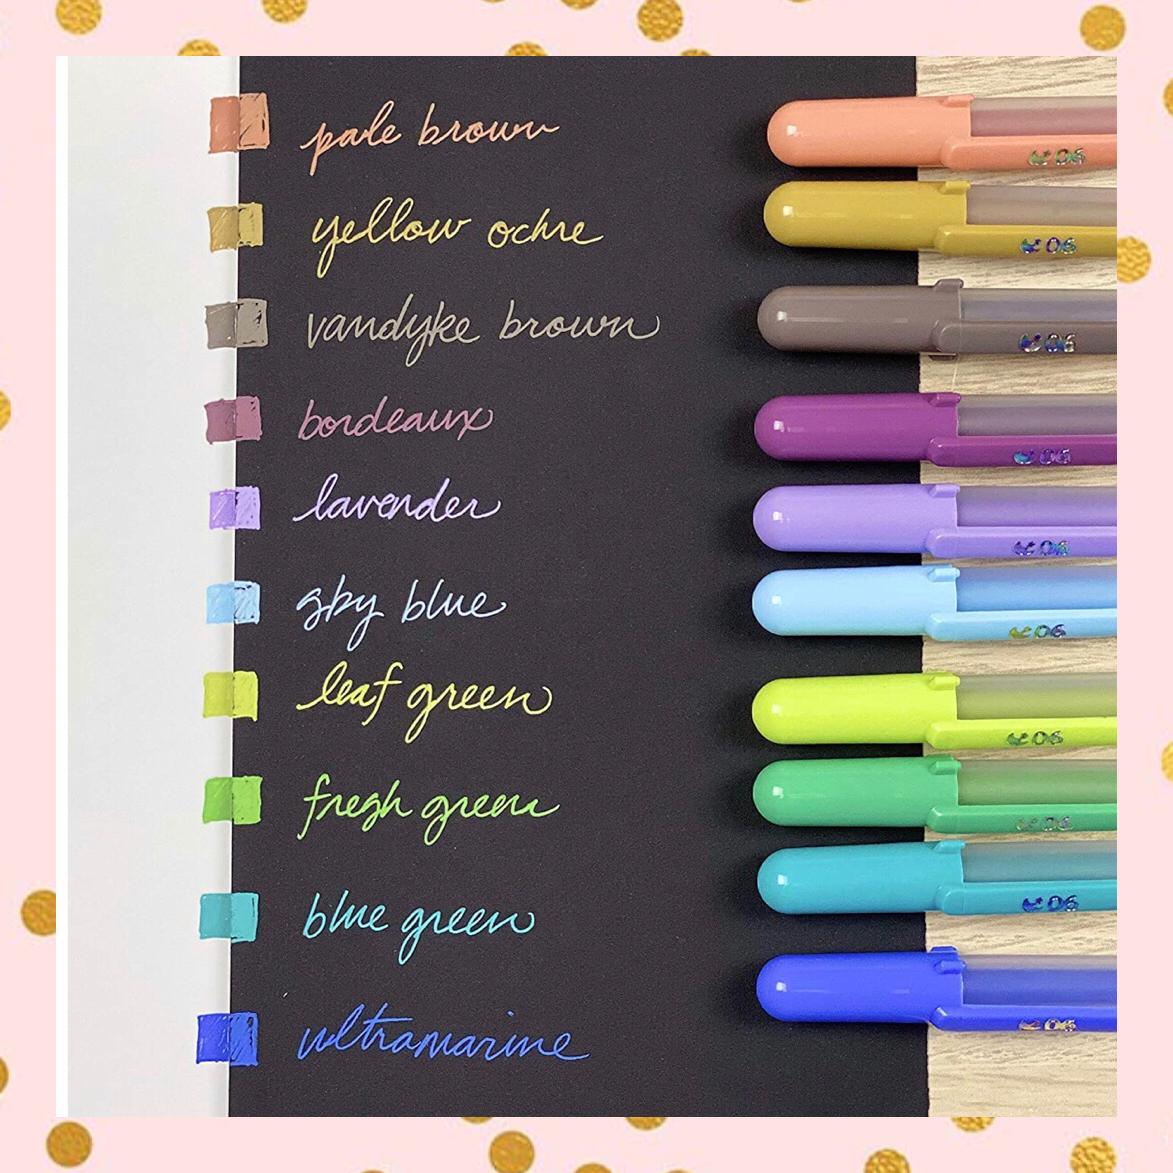 pale brown
06
yellow ochre
06
vandyke brown
06
bordeaux
06
lavender
06
sky blue
06
leaf green
06
fresh green
06
blue green
06
ultramarine
06